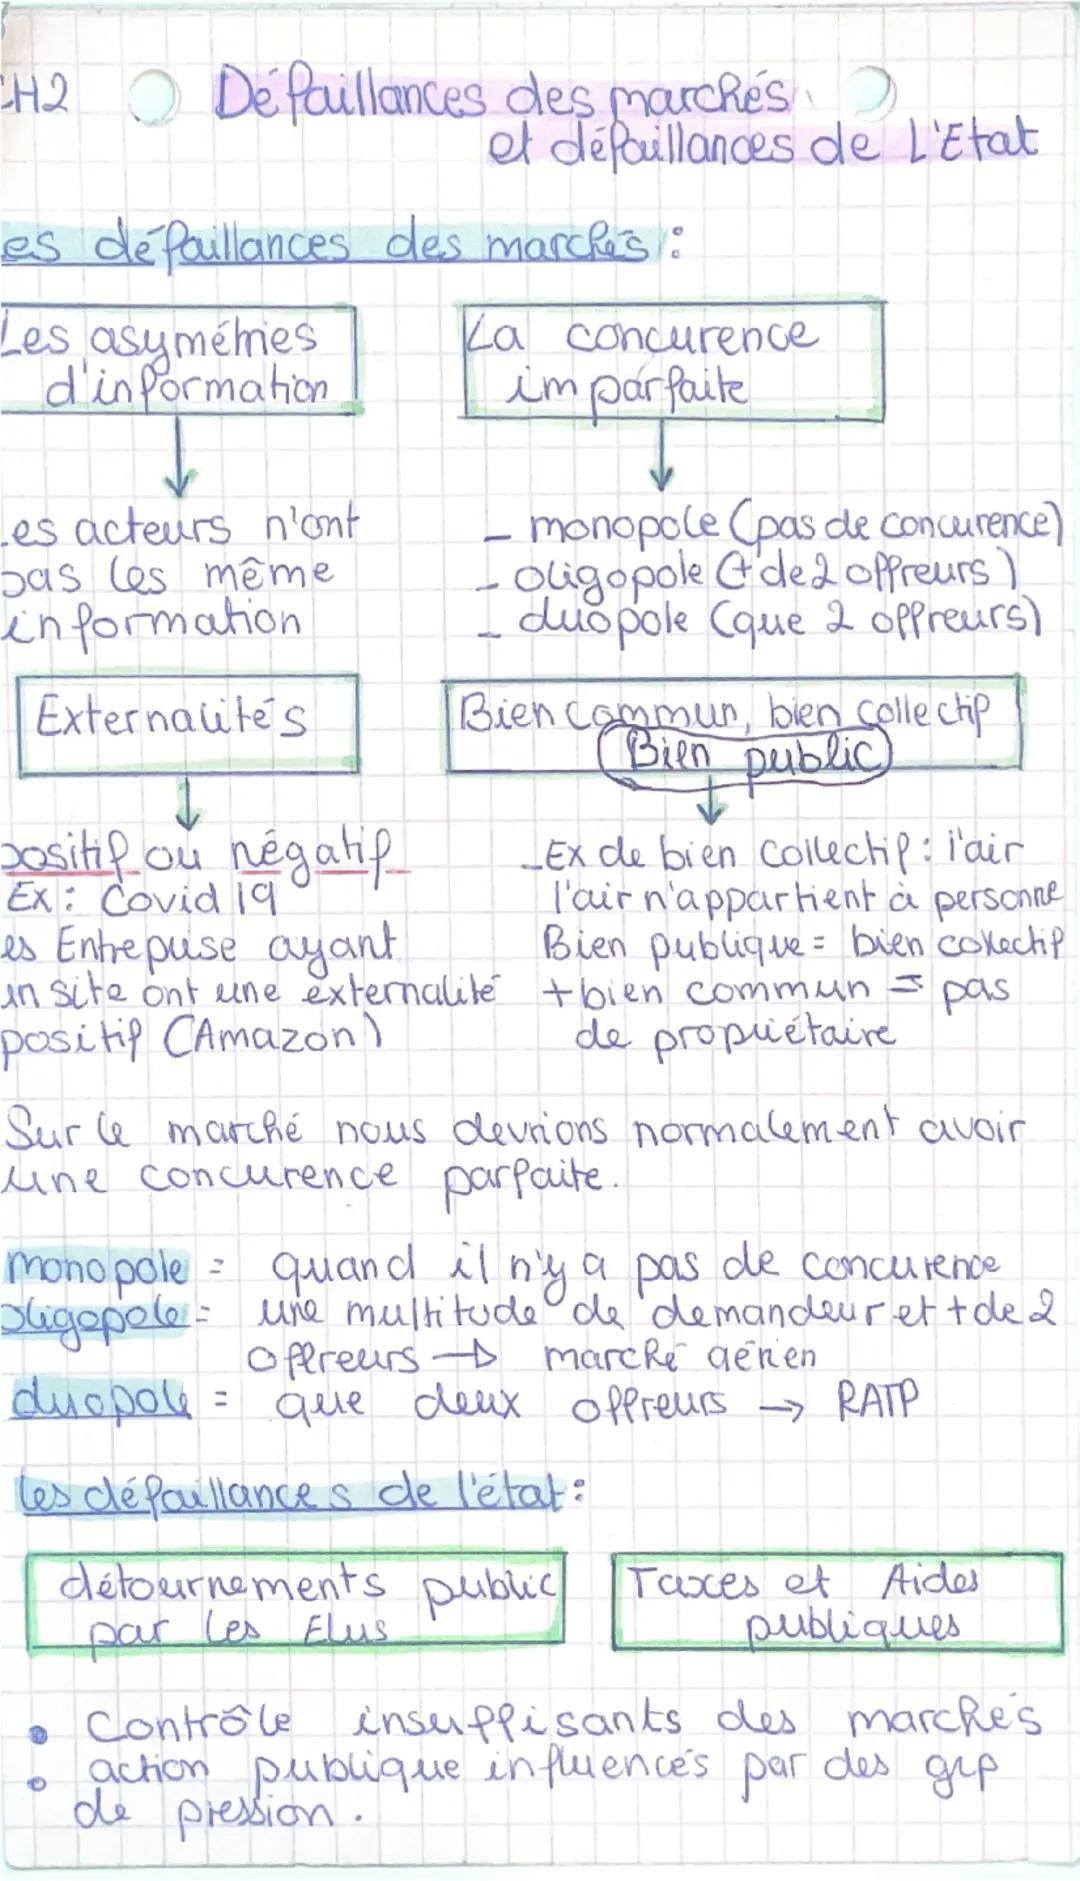 CH2 Défaillances des marchés
et défaillances de L'Etat
es défaillances des marchés :
Les asymétries
d'information
La concurence
imparfaite
Les acteurs n'ont
pas les même
information
- monopole (pas de concurence)
- oligopole (+ de 2 offreurs)
- duopole (que 2 offreurs)
Externalités
Bien commun, bien collectif
Bien public
positif ou négatif
Ex : Covid 19
es Entreprise ayant
un site ont une externalité
positif (Amazon)
- Ex de bien collectif : l'air
l'air n'appartient à personne
Bien publique = bien collectif
+ bien commun = pas
de propriétaire
Sur le marché nous devrions normalement avoir
une concurence parfaite.
monopole = quand il n'y a pas de concurence
oligopole = une multitude de demandeur et + de 2
offreurs → marché aérien
duopole = que deux offreurs → RATP
les défaillances de l'état :
détournements public
par les Elus
Taxes et Aides
publiques
• Contrôle insuffisants des marchés
• action publique influencés par des grp
de pression.